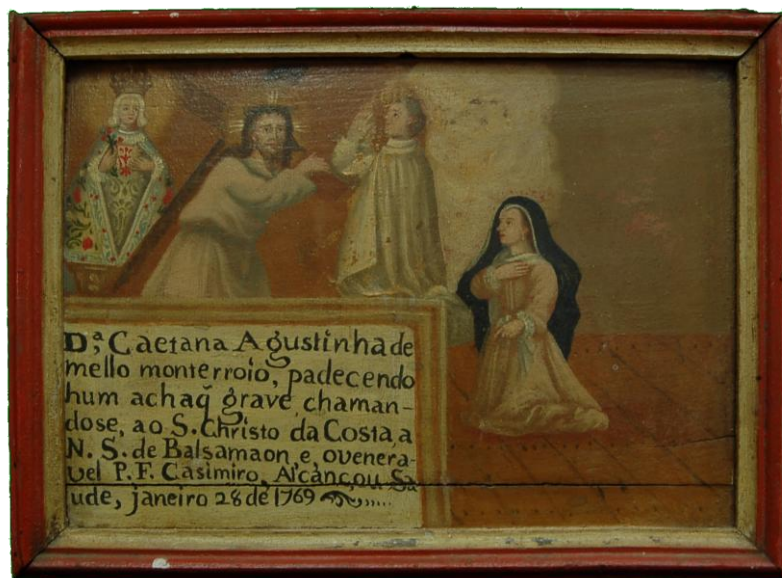 D.ª Caetana Agustinha de
mello monterroio, padecendo
hum achaq̃ grave, chaman-
dose, ao S. Christo da Costa, a
N. S. de Balsamaon, e, ovenera-
vel P. F. Casimiro, Alcançou Sa
ude, janeiro 28 de 1769